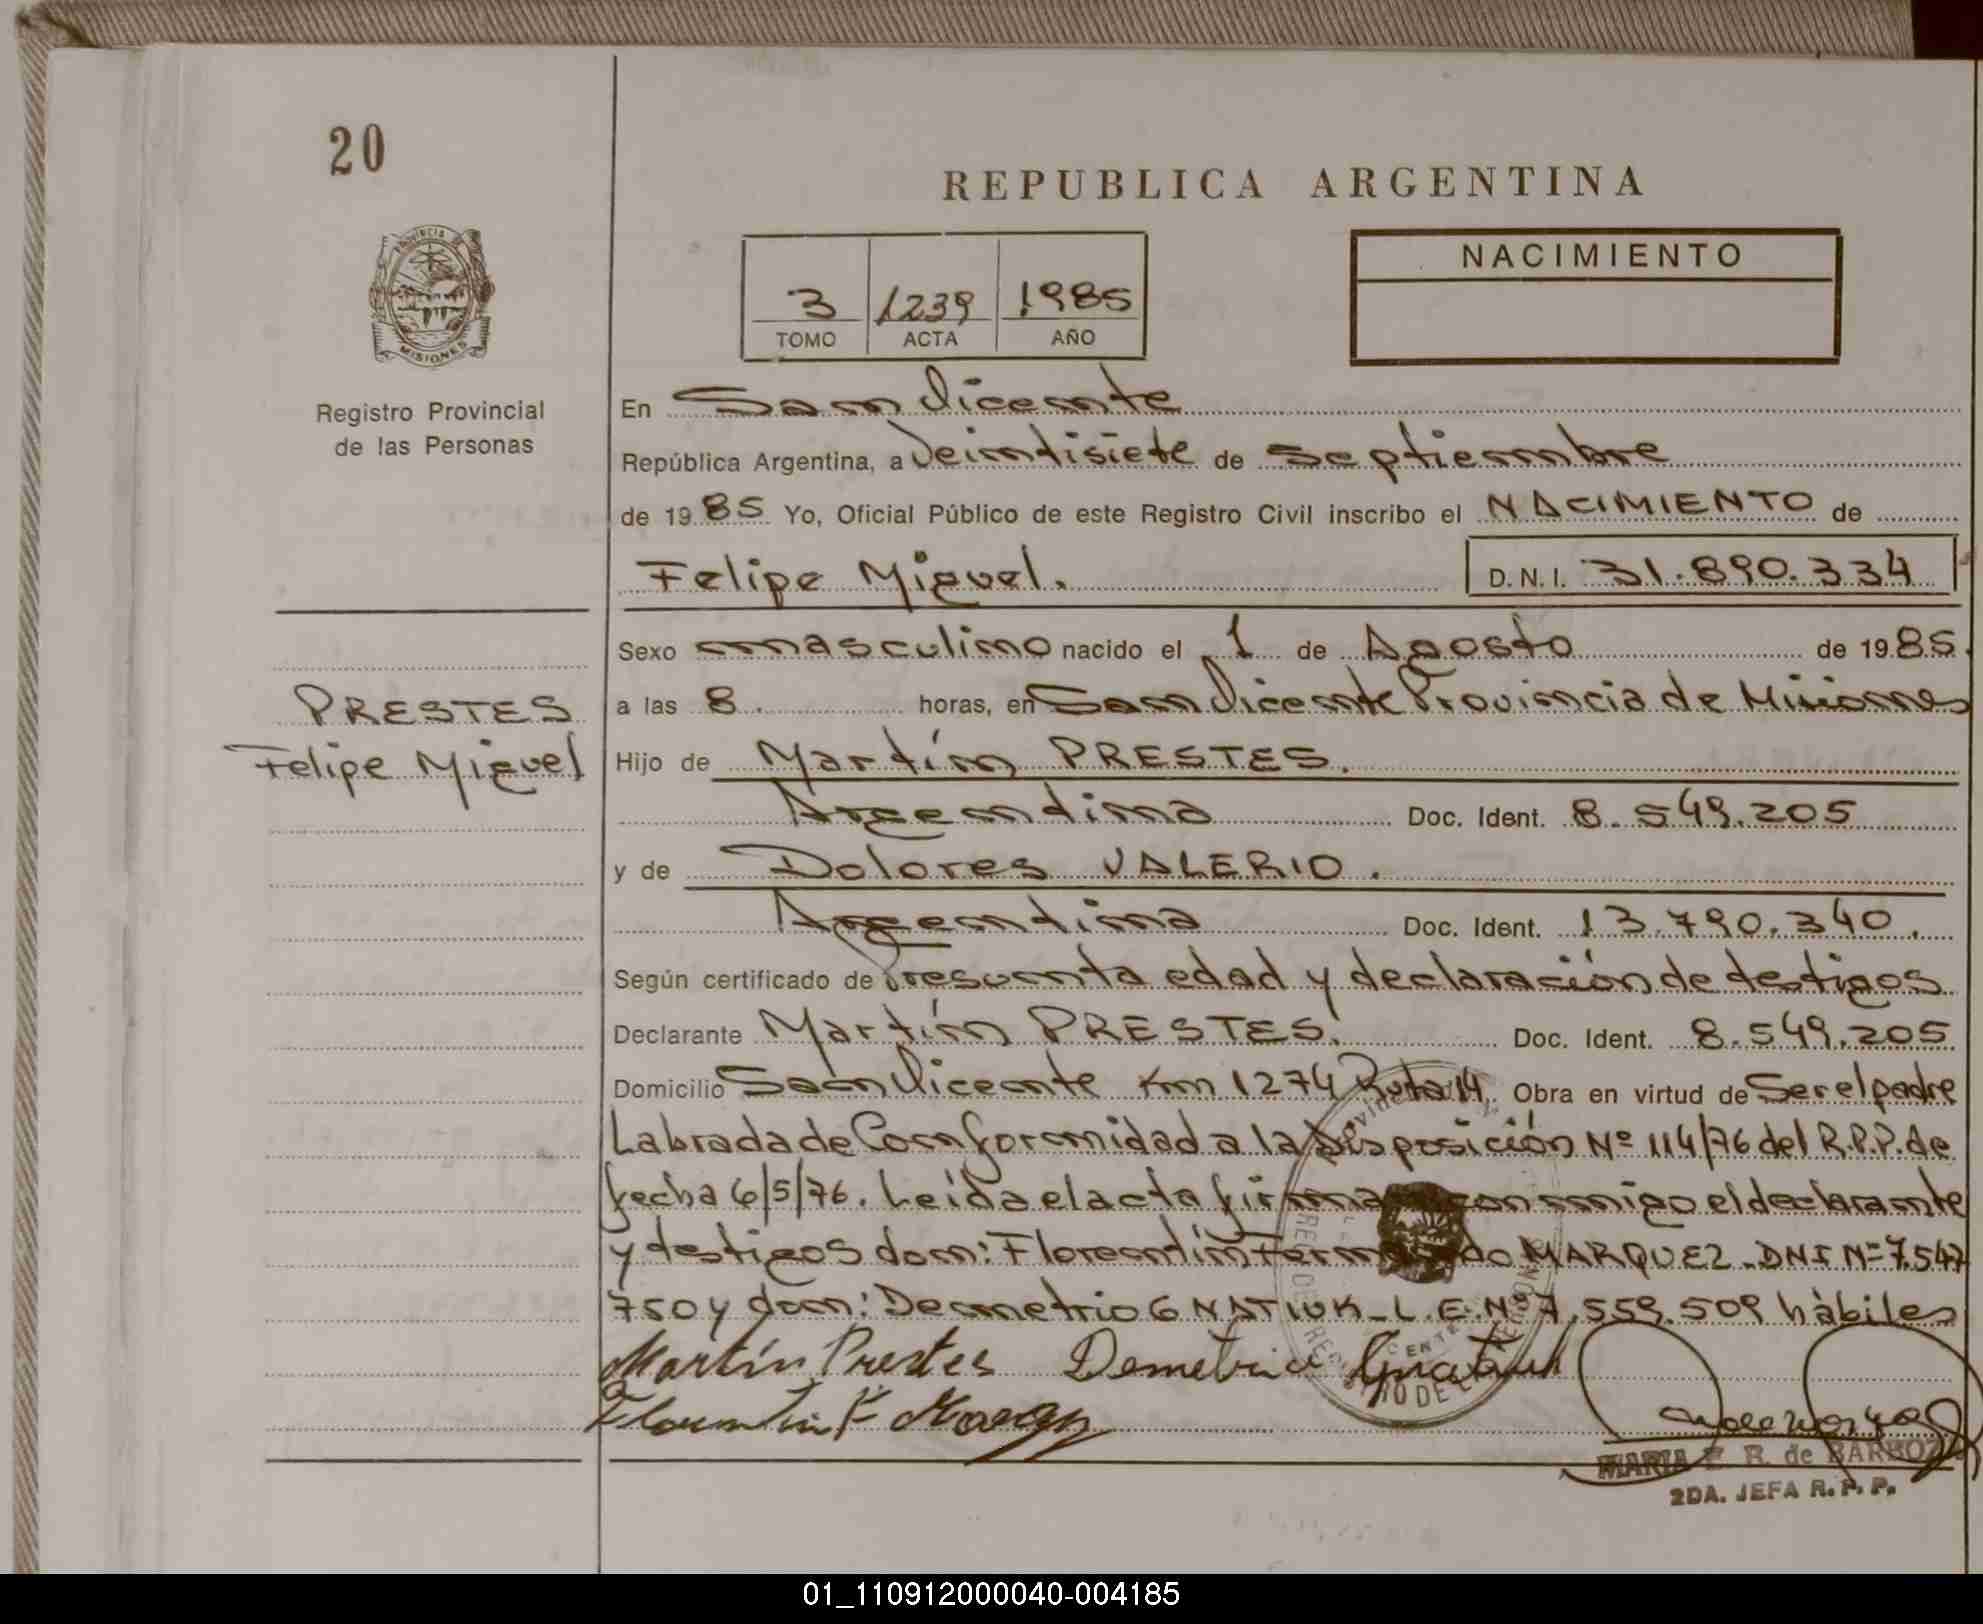 20
REPUBLICA ARGENTINA
PROVINCIA DE
MISIONES
Registro Provincial
de las Personas
3 1239 1985
TOMO ACTA AÑO
NACIMIENTO
En San Vicente
República Argentina, a Veintisiete de Septiembre
de 1985 Yo, Oficial Público de este Registro Civil inscribo el NACIMIENTO de
Felipe Miguel. D. N. I. 31.890.334
Sexo masculino nacido el 1 de Agosto de 1985.
PRESTES
Felipe Miguel
a las 8. horas, en San Vicente Provincia de Misiones
Hijo de Martín PRESTES.
Argentina Doc. Ident. 8.549.205
y de Dolores VALERIO.
Argentina Doc. Ident. 13.790.340.
Según certificado de Presunta edad y declaración de testigos
Declarante Martín PRESTES. Doc. Ident. 8.549.205
Domicilio San Vicente Km 1274 Ruta 14, Obra en virtud de Ser el padre
Labrada de Conformidad a la Disposición Nº 114/76 del R.P.P. de
fecha 6/5/76. Leída el acta firman con migo el declarante
y testigos don: Florentín Fernando MARQUEZ - DNI Nº 7.547
750 y don: Demetrio GNATIUK - L.E. Nº 7.559.509 hàbiles
Martín Prestes Demetrio Gnatiuk
Florentin F
MARIA E. R. de BARBOZA
2DA. JEFA R. P. P.
01_110912000040-004185